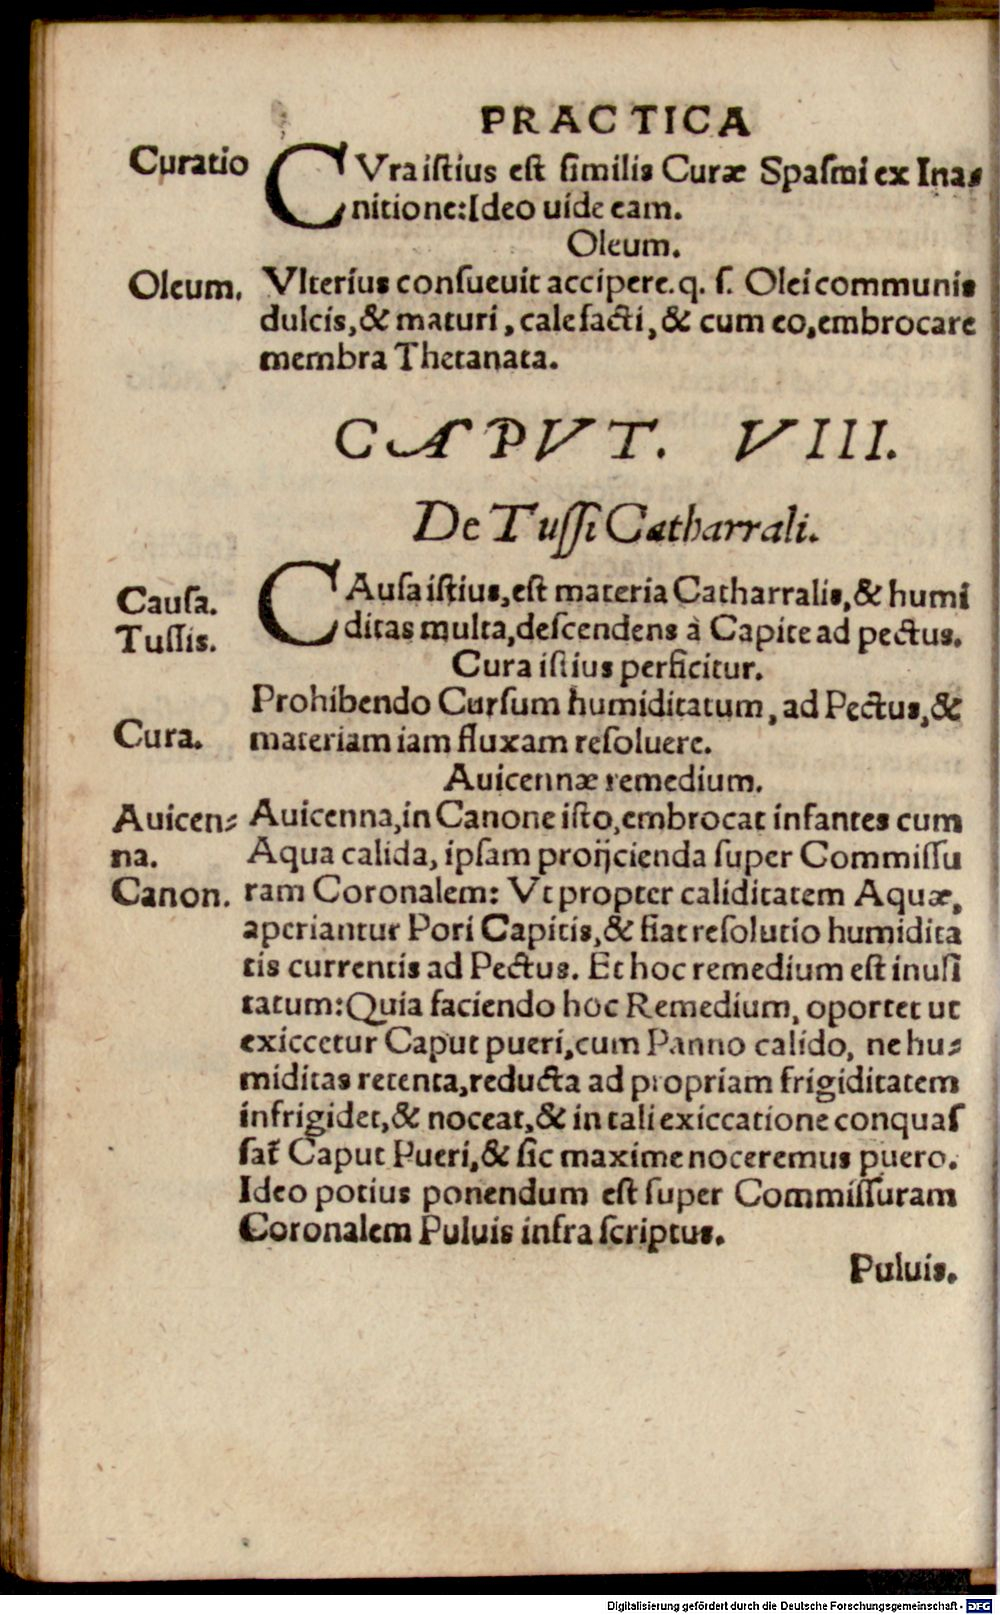 PRACTICA
Curatio
CVra iſtius eſt ſimilis Curæ Spaſmi ex Ina⸗
nitione: Ideo uide eam.
Oleum.
Oleum.
Vlterius conſueuit accipere. q. ſ. Olei communis
dulcis, & maturi, calefacti, & cum eo, embrocare
membra Thetanata.
CAPVT. VIII.
De Tuſſi Catharrali.
Cauſa.
Tuſſis.
CAuſa iſtius, eſt materia Catharralis, & humi
ditas multa, deſcendens à Capite ad pectus.
Cura iſtius perficitur.
Prohibendo Curſum humiditatum, ad Pectus, &
Cura.
materiam iam fluxam reſoluere.
Auicennæ remedium.
Auicen⸗
na.
Canon.
Auicenna, in Canone iſto, embrocat infantes cum
Aqua calida, ipſam proijcienda ſuper Commiſſu
ram Coronalem: Vt propter caliditatem Aquæ,
aperiantur Pori Capitis, & fiat reſolutio humidita
tis currentis ad Pectus. Et hoc remedium eſt inuſi
tatum: Quia faciendo hoc Remedium, oportet ut
exiccetur Caput pueri, cum Panno calido, ne hu⸗
miditas retenta, reducta ad propriam frigiditatem
infrigidet, & noceat, & in tali exiccatione conquaſ
ſat᷑ Caput Pueri, & ſic maxime noceremus puero.
Ideo potius ponendum eſt ſuper Commiſſuram
Coronalem Puluis infra ſcriptus.
Puluis.
Digitalisierung gefördert durch die Deutsche Forschungsgemeinschaft - DFG